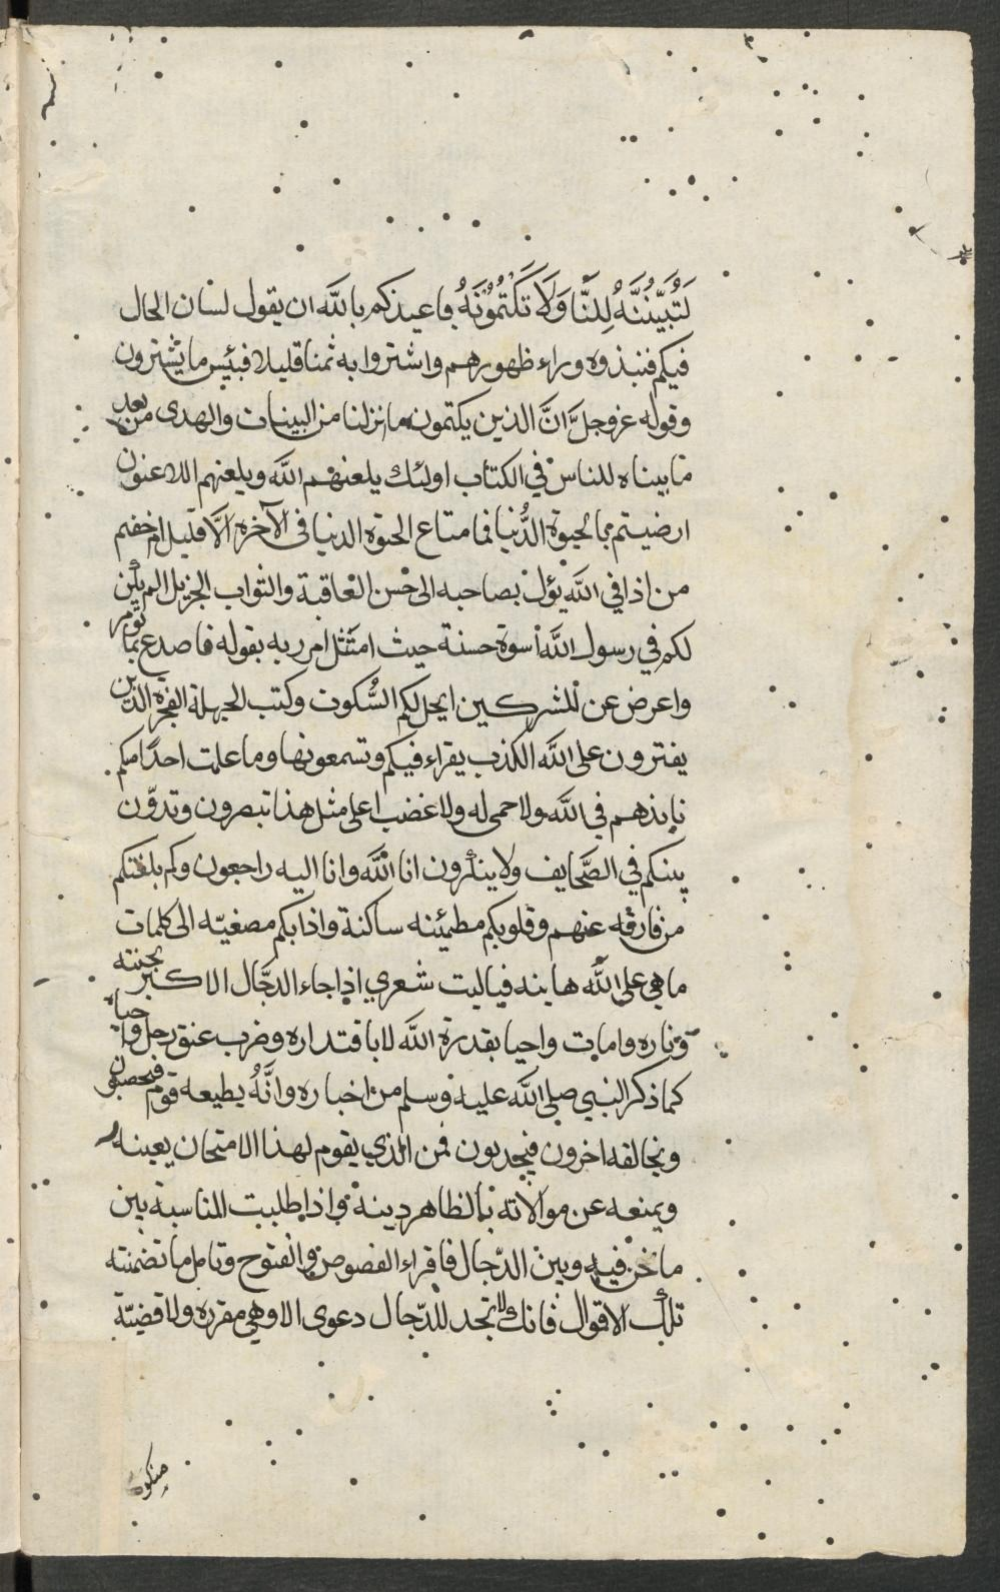 لَتُبَيِّنُنَّهُ لِلنَّاسِ وَلَا تَكْتُمُونَهُ فاعيذكم بالله ان يقول لسان الحال
فيكم فنبذوه وراء ظهورهم واشتروا به ثمنا قليلا فبئس ما يشترون
وقوله عز وجلَّ انَّ الذين يكتمون ما نزلنا من البينات والهدى من بعد
ما بيناه للناس في الكتاب اولئك يلعنهم الله ويلعنهم اللاعنون
ارضيتم بالحيوة الدُّنيا فما متاع الحيوة الدنيا في الآخرة الَّا قليل ام خفتم
من اذا في الله يؤل بصاحبه الى حسن العاقبة والثواب الجزيل الم يكن
لكم في رسول الله أسوة حسنة حيث امتثل امر ربه بقوله فاصدع بما تؤمر
واعرض عن المشركين ايحل لكم السُّكوت وكتب الجهلة الفجرة الذين
يفترون على الله الكذب يقراء فيكم وتسمعونها وما علمت احدًا منكم
نابذهم في الله ولا حمى له ولا غضب اعلى مثل هذا تبصرون وتدوّن
بينكم في الصَّحايف ولا ينكرون انا لله وانا اليه راجعون وكم بلغتكم
من فارقه عنهم وقلوبكم مطمئنه ساكنة واذانكم مصغيّه الى كلمات
ما هي على الله هاينه فياليت شعري اذا جاء الدجَّال الاكبر بجنته
وناره وامات واحيا بقدرة الله لا باقتداره وضرب عنق رجل واحياه
كما ذكر النبي صلى الله عليه وسلم من اخباره وانَّهُ يطيعه قوم فيخصبون
ويخالفه اخرون فيجدبون فمن الذي يقوم لهذا الامتحان يعينه
ويمنعه عن موالاته بالظاهر دينه واذا طلبت المناسبة بين
ما نحن فيه وبين الدّجال فاقراء الفصوص والفتوح وتامل ما تضمنته
تلك الاقوال فانك لا تجد للدّجال دعوى الا وهي مقرره ولا قضيّة